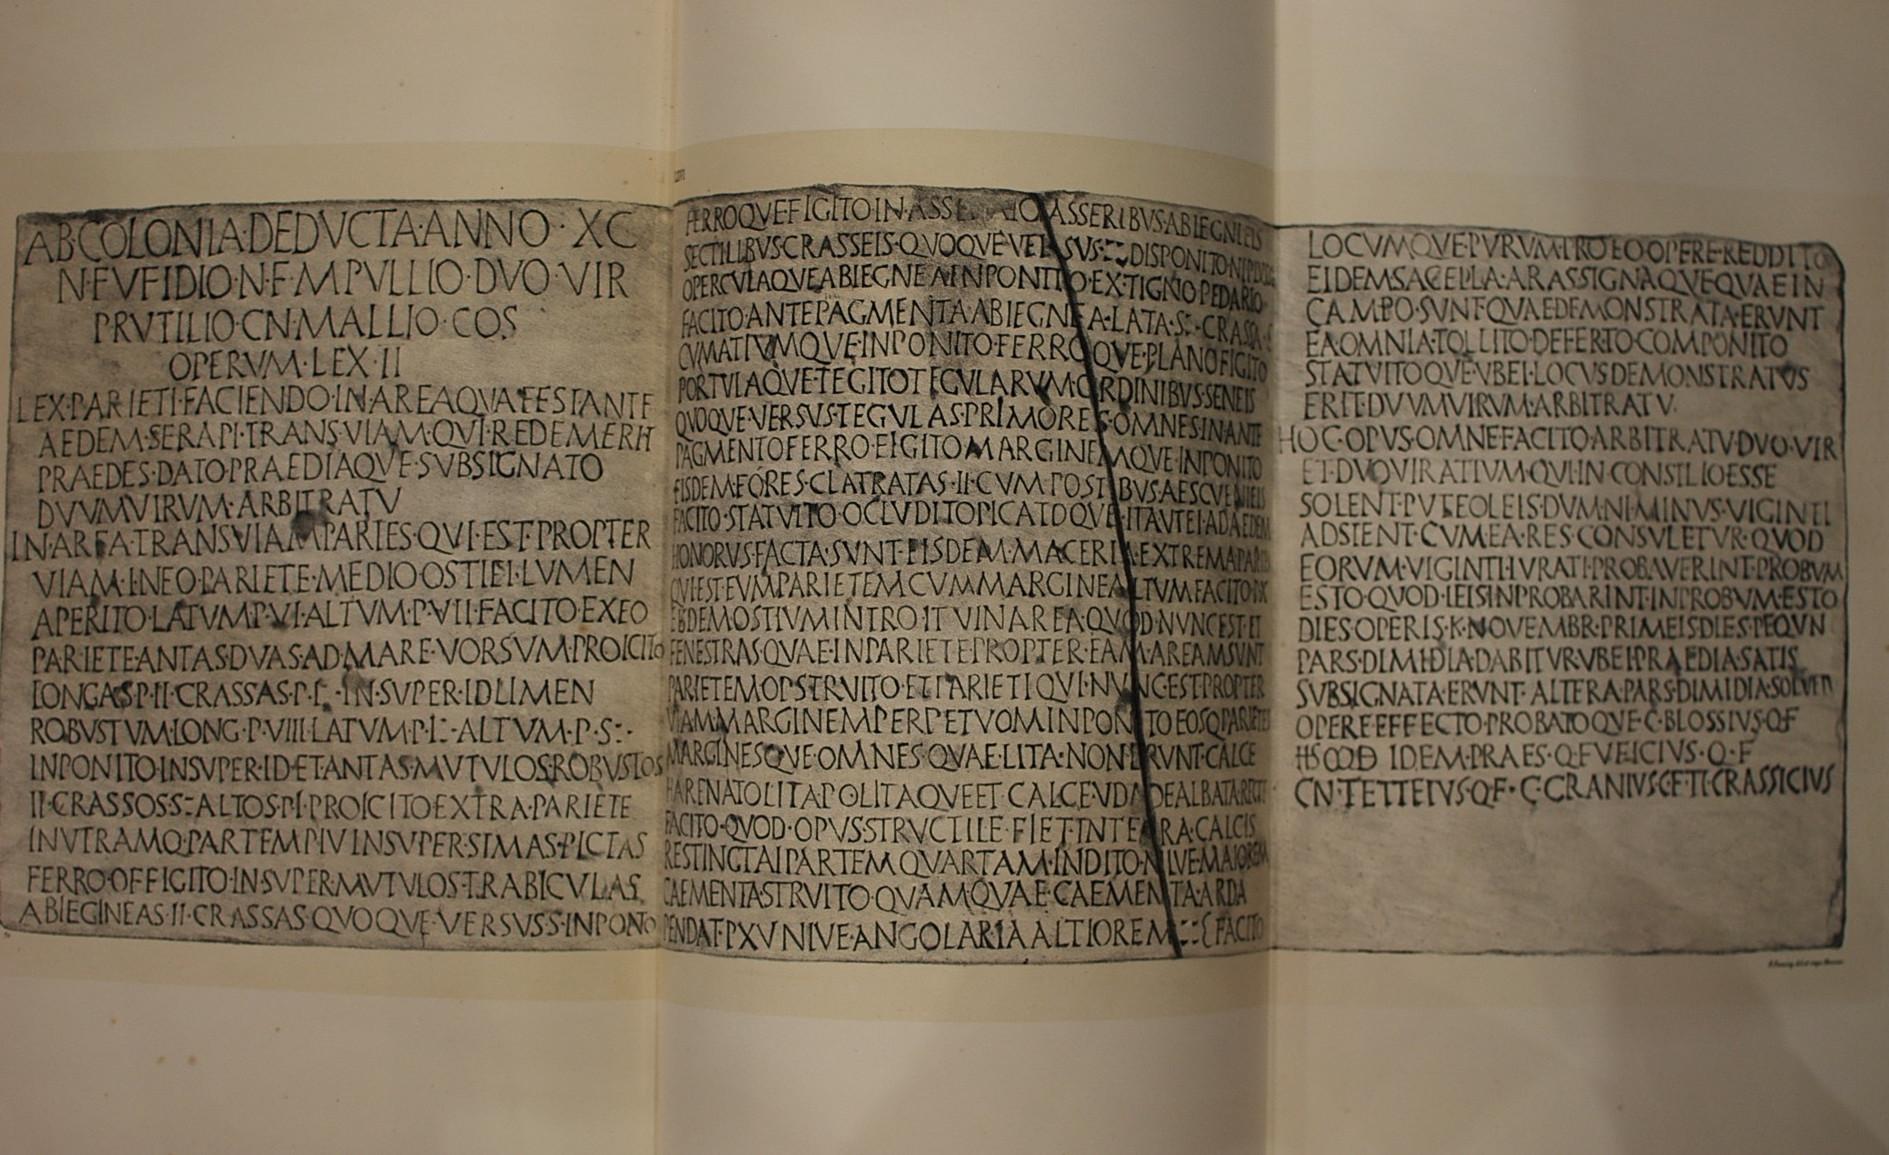 AB·COLONIA·DEDVCTA·ANNO·XC
N·FVFIDIO·N·F·M·PVLLIO·DVO·VIR
P·RVTILIO·CN·MALLIO·COS
OPERVM·LEX·II
LEX·PARIETI·FACIENDO·IN·AREA·QVAE·EST·ANTE
AEDEM·SERAPI·TRANS·VIAM·QVI·REDEMERIT
PRAEDES·DATO·PRAEDIAQVE·SVBSIGNATO
DVVMVIRVM·ARBITRATV
IN·AREA·TRANS·VIAM·PARIES·QVI·EST·PROPTER
VIAM·IN·EO·PARIETE·MEDIO·OSTIEI·LVMEN
APERITO·LATVM·P·VI·ALTVM·P·VII·FACITO·EX·EO
PARIETE·ANTAS·DVAS·AD·MARE·VORSVM·PROICITO
LONGAS·P·II·CRASSAS·P· IN·SVPER·ID·LIMEN
ROBVSTVM·LONG·P·VIII·LATVM·P· ALTVM·P·S
INPONITO·INSVPER·ID·ET·ANTAS·MVTVLOS·ROBVSTOS
II·CRASSOS·S ALTOS·P·I·PROICITO·EXTRA·PARIETE
IN·VTRAMQ·PARTEM·P·IV·INSVPER·SIMAS·PICTAS
FERRO·OFFIGITO·IN·SVPER·MVTVLOS·TRABICVLAS
ABIEGINEAS·II·CRASSAS·QVOQVE·VERSVS·S·INPONO
FERROQVE·FIGITO·IN·ASSE ASSERIBVS·ABIEGNIEIS
SECTILIBVS·CRASSEIS·QVOQVE·VERSVS· DISPONITO
OPERCVLAQVE·ABIEGNEA·INPONITO·EX·TIGNO·PEDARIO
FACITO·ANTEPAGMENTA·ABIEGNEA·LATA·S CRASSA
CVMATIVMQVE·INPONITO·FERROQVE·PLANO·FIGITO
PORTVLAQVE·TEGITO·TEGVLARVM·ORDINIBVS·SENEIS
QVOQVE·VERSVS·TEGVLAS·PRIMORES·OMNES·IN·ANTE
PAGMENTO·FERRO·FIGITO·MARGINEMQVE·INPONITO
EISDEM·FORES·CLATRATAS·II·CVM·POSTIBVS·AESCVLNIEIS
FACITO·STATVITO·OCLVDITO·PICATOQVE·ITA·VTEI·AD·AEDEM
HONORVS·FACTA·SVNT·EISDEM·MACERIA·EXTREMA·PARIES
QVI·EST·EVM·PARIETEM·CVM·MARGINE·ALTVM·FACITO·P·X
EISDEM·OSTIVM·INTROITV·IN·AREA·QVOD·NVNC·EST·ET
FENESTRAS·QVAE·IN·PARIETE·PROPTER·EAM·AREAM·SVNT
PARIETEM·OPSTRVITO·ET·PARIETI·QVI·NVNC·EST·PROPTER
VIAM·MARGINEM·PERPETVOM·INPONITO·EOSQ·PARIETES
MARGINESQVE·OMNES·QVAE·LITA·NON·ERVNT·CALCE
HARENATO·LITA·POLITAQVE·ET·CALCE·VDA·DEALBATA·RECTE
FACITO·QVOD·OPVS·STRVCTILE·FIET·IN·TERRA·CALCIS
RESTINCTAI·PARTEM·QVARTAM·INDITO·NIVE·MAIOREM
CAEMENTA·STRVITO·QVAM·QVAE·CAEMENTA·ARDA
PENDAT·P·XV·NIVE·ANGOLARIA·ALTIOREM FACITO
LOCVMQVE·PVRVM·PRO·EO·OPERE·REDDITO
EIDEM·SACELLA·ARAS·SIGNAQVE·QVAE·IN
CAMPO·SVNT·QVAE·DEMONSTRATA·ERVNT
EA·OMNIA·TOLLITO·DEFERTO·COMPONITO
STATVITOQVE·VBEI·LOCVS·DEMONSTRATVS
ERIT·DVVMVIRVM·ARBITRATV
HOC·OPVS·OMNE·FACITO·ARBITRATV·DVO·VIR
ET·DVOVIRATIVM·QVI·IN·CONSILIO·ESSE
SOLENT·PVTEOLEIS·DVM·NI·MINVS·VIGINTI
ADSIENT·CVM·EA·RES·CONSVLETVR·QVOD
EORVM·VIGINTI·IVRATI·PROBAVERINT·PROBVM
ESTO·QVOD·IEIS·INPROBARINT·INPROBVM·ESTO
DIES·OPERIS·K·NOVEMBR·PRIMEIS·DIES·PEQVN
PARS·DIMIDIA·DABITVR·VBEI·PRAEDIA·SATIS
SVBSIGNATA·ERVNT·ALTERA·PARS·DIMIDIA·SOLVETVR
OPERE·EFFECTO·PROBATOQVE·C·BLOSSIVS·Q·F
IDEM·PRAES·Q·FVFICIVS·Q·F
CN·TETTEIVS·Q·F·C·GRANIVS·C·F·TI·CRASSICIVS